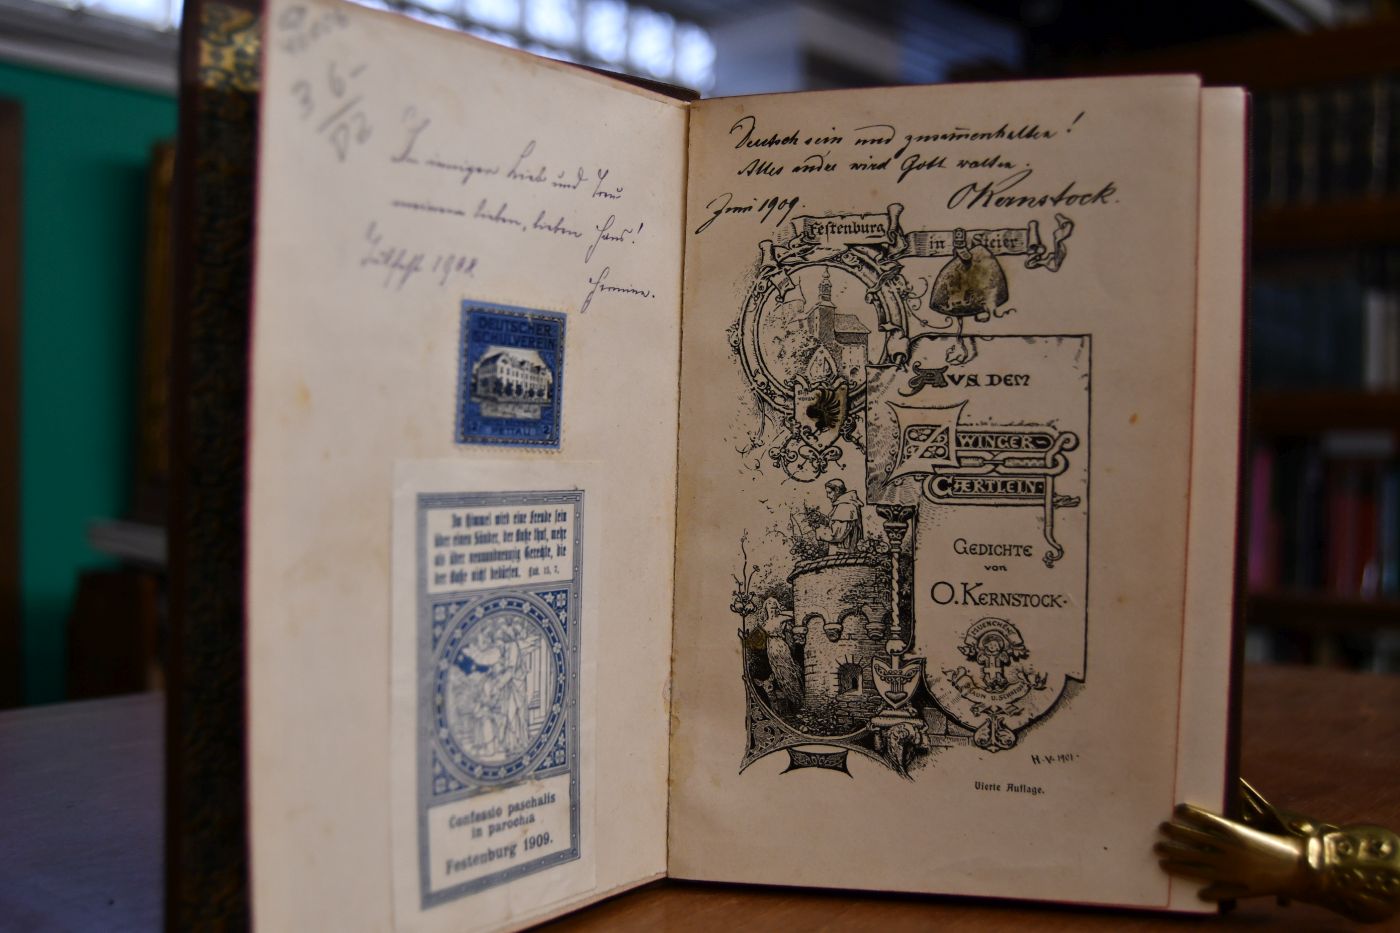 6-
In innigen Lieb und Treu
meinem lieben, lieben Hans!
Julfest 1908.
Hermine.
DEUTSCHER
SCHULVEREIN
Im Himmel wird eine Freude sein
über einen Sünder, der Buße thut, mehr
als über neunundneunzig Gerechte, die
der Buße nicht bedürfen. Luk. 15, 7.
Confessio paschalis
in parochia
Festenburg 1909.
Deutsch sein und zusam̅enhalten!
Alles andre wird Gott walten.
Juni 1909.
OKernstock.
Festenburg
in Steier
AVS DEM
ZWINGER-
GÆRTLEIN
GEDICHTE
VON
O. KERNSTOCK
MUENCHEN
BRAUN U. SCHNEIDER
H.V. 1901.
Vierte Auflage.